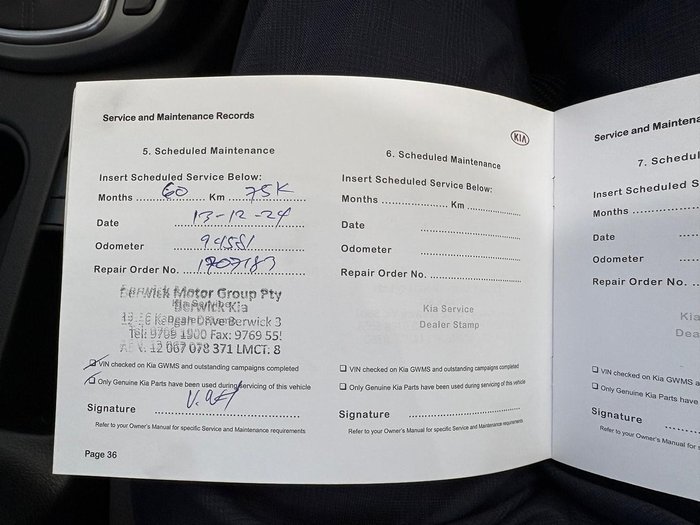 Service and Maintenance Records
5. Scheduled Maintenance
Insert Scheduled Service Below:
Months 60 Km 75K
Date 13-12-24
Odometer 94551
Repair Order No. 1707183
Berwick Motor Group Pty
Berwick Kia
Drive Berwick 3
Tel: 9709 1900 Fax: 9769 55
12 067 078 371 LMCT: 8
VIN checked on Kia GWMS and outstanding campaigns completed
Only Genuine Kia Parts have been used during servicing of this vehicle
Signature
Refer to your Owner's Manual for specific Service and Maintenance requirements
Page 36
KIA
6. Scheduled Maintenance
Insert Scheduled Service Below:
Months Km
Date
Odometer
Repair Order No.
Kia Service
Dealer Stamp
VIN checked on Kia GWMS and outstanding campaigns completed
Only Genuine Kia Parts have been used during servicing of this vehicle
Signature
Refer to your Owner's Manual for specific Service and Maintenance requirements
Service and Maintena
7. Schedul
Insert Scheduled S
Months
Date
Odometer
Repair Order No.
Kia
Dea
VIN checked on Kia GWMS
Only Genuine Kia Parts have
Signature
Refer to your Owner's Manual fo